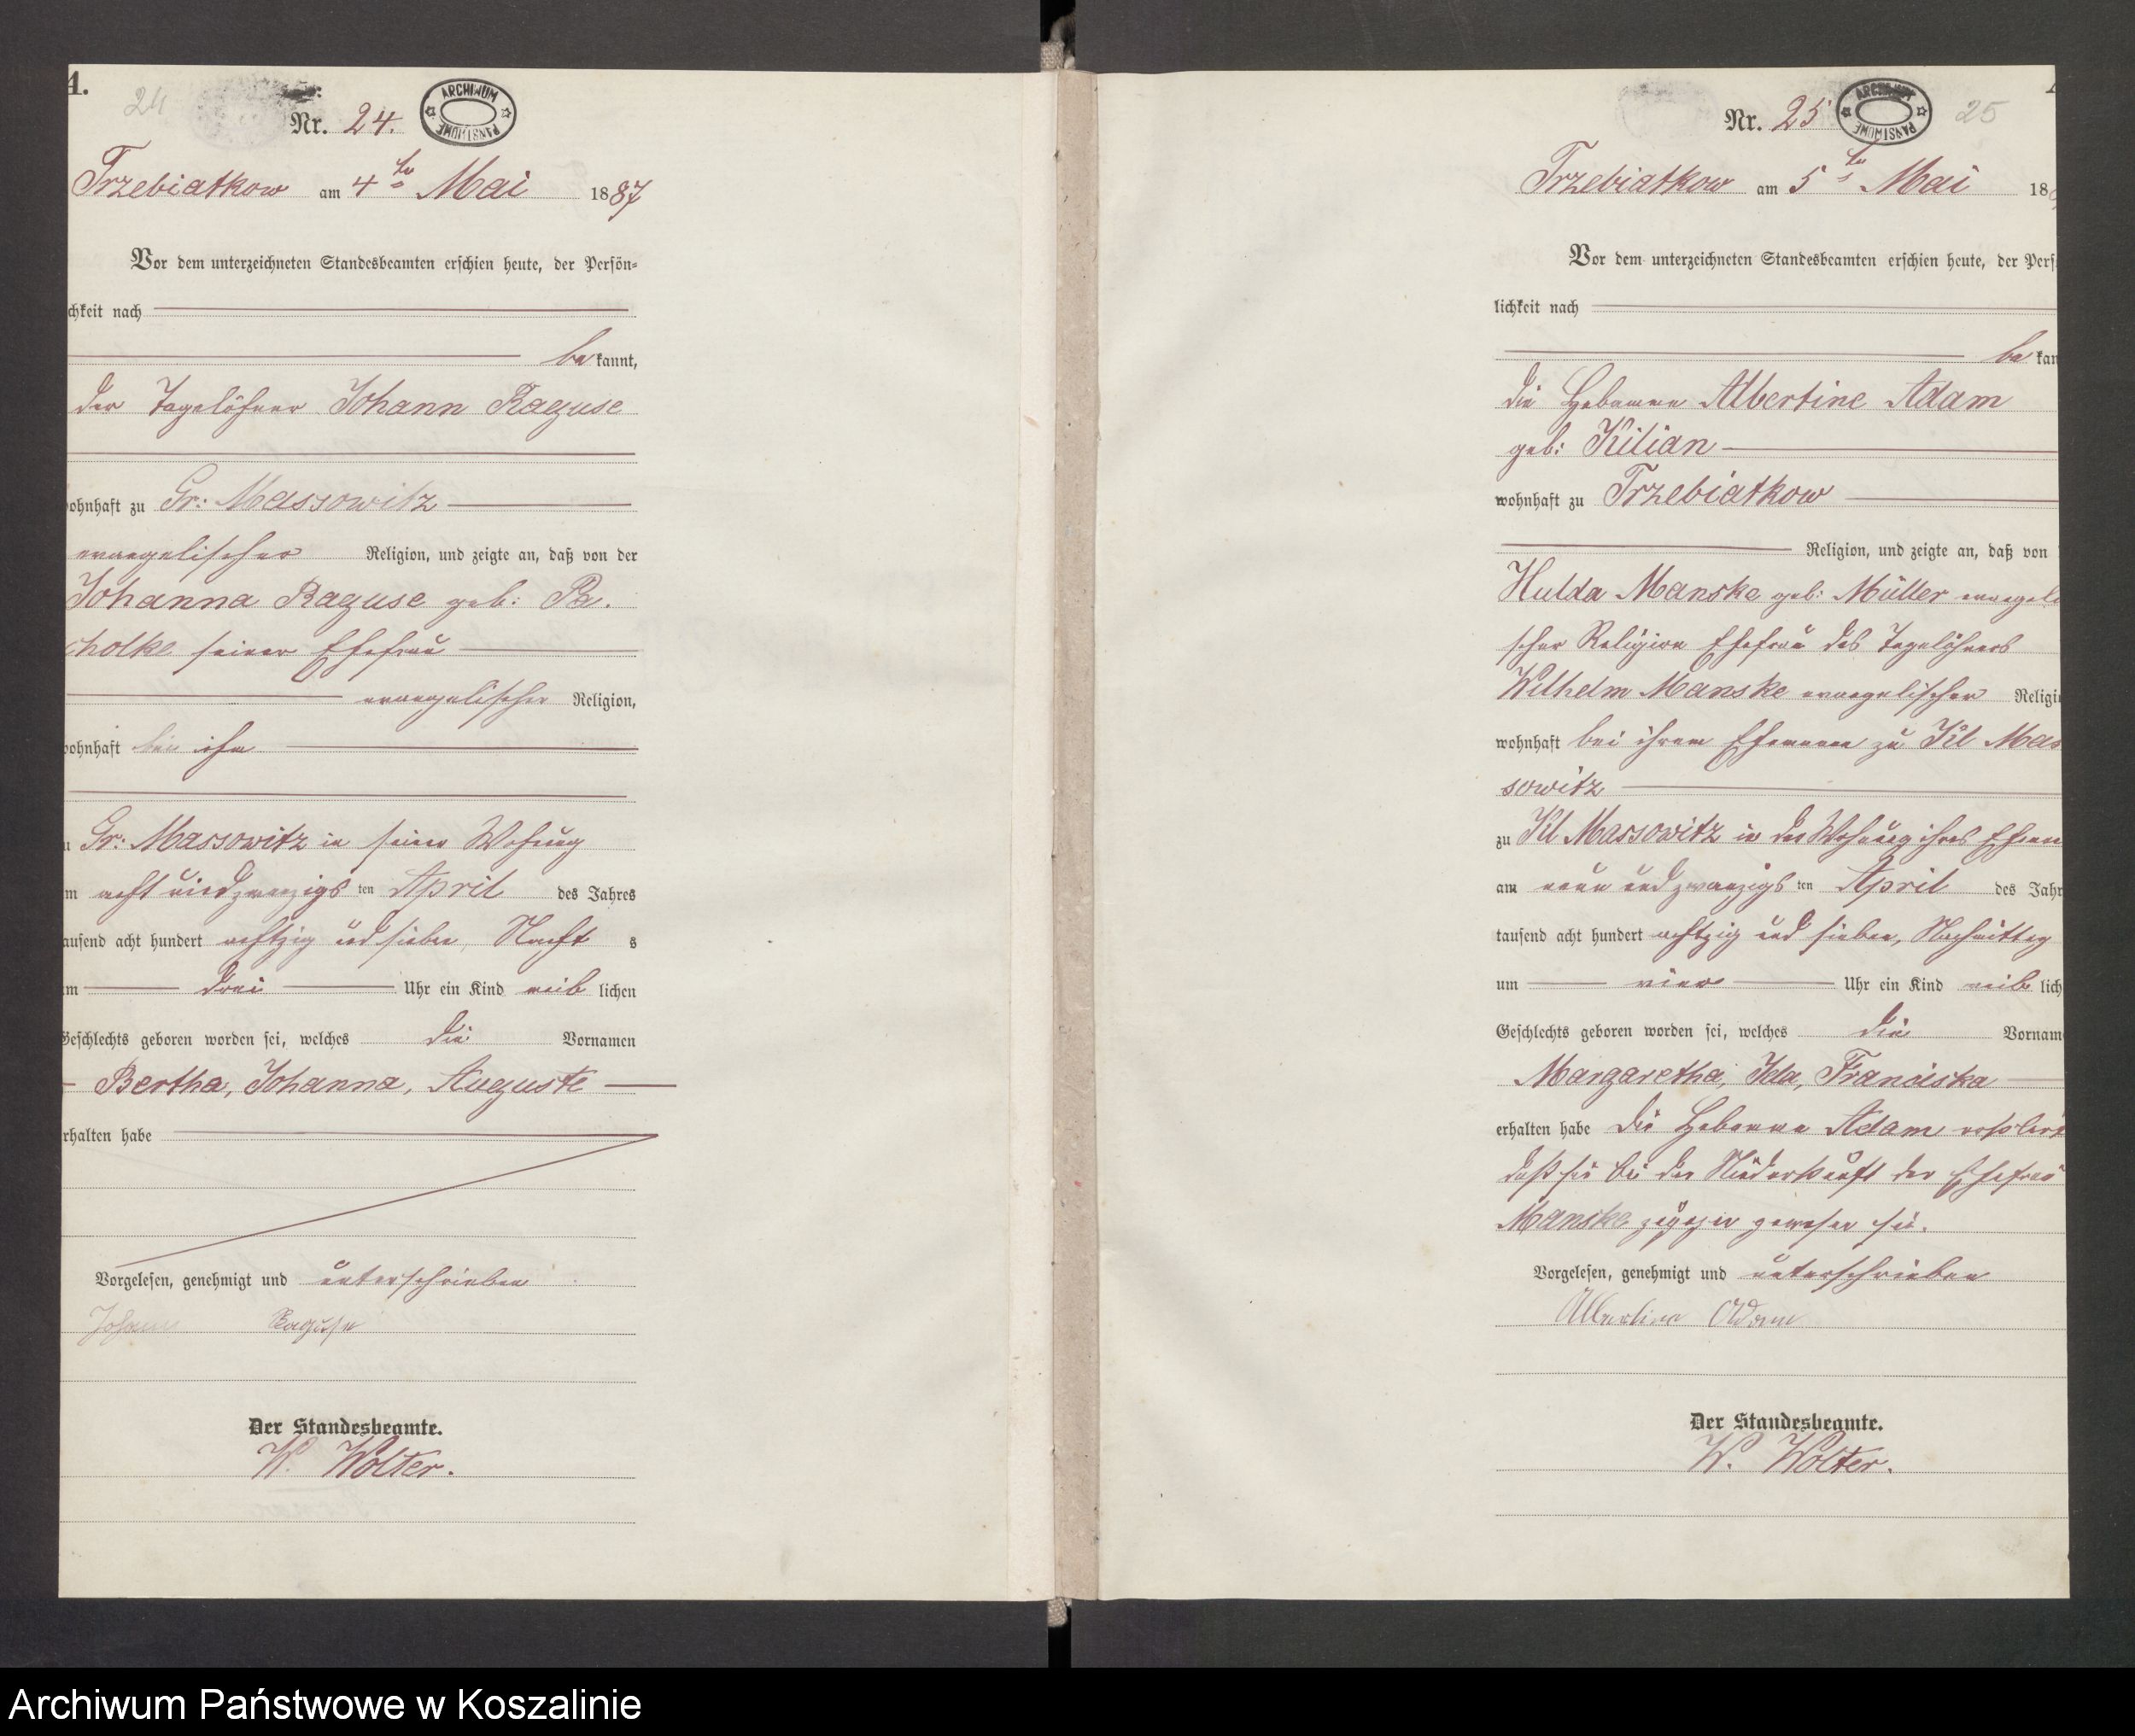 A.
24
Nr. 24.
ARCHIWUM PAŃSTWOWE
Trzebiatkow am 4ten Mai 1887
Vor dem unterzeichneten Standesbeamten erschien heute, der Persön-
chkeit nach
bekannt,
der Tagelöhner Johann Raguse
ohnhaft zu Gr: Massowitz
evangelischer Religion, und zeigte an, daß von der
Johanna Raguse geb: Pa.
cholke seiner Ehefrau
evangelischer Religion,
ohnhaft bei ihm
Gr: Massowitz in seiner Wohnung
m acht und zwanzigsten April des Jahres
ausend acht hundert achtzig und sieben, Nachts
m drei Uhr ein Kind weiblichen
Geschlechts geboren worden sei, welches die Vornamen
Bertha, Johanna, Auguste
rhalten habe
Vorgelesen, genehmigt und unterschrieben
Johann Raguse
Der Standesbeamte.
W. Wolter.
Nr. 25
ARCHIWUM PAŃSTWOWE
25
Trzebiatkow am 5ten Mai 18
Vor dem unterzeichneten Standesbeamten erschien heute, der Pers
lichkeit nach
bekan
die Hebamme Albertine Adam
geb: Kilian
wohnhaft zu Trzebiatkow
Religion, und zeigte an, daß von
Hulda Manske geb: Müller evangeli
scher Religion Ehefrau des Tagelöhners
Wilhelm Manske evangelischer Religi
wohnhaft bei ihrem Ehemann zu Kl Mas
sowitz
zu Kl Massowitz in der Wohnung ihres Ehem
am neun und zwanzigsten April des Jahr
tausend acht hundert achtzig und sieben, Nachmittag
um vier Uhr ein Kind weiblich
Geschlechts geboren worden sei, welches die Vornam
Margaretha, Ida, Franciska
erhalten habe Die Hebamme Adam erklärt
daß sie bei der Niederkunft der Ehefrau
Manske zugegen gewesen sei.
Vorgelesen, genehmigt und unterschrieben
Albertine Adam
Der Standesbeamte.
W. Wolter.
Archiwum Państwowe w Koszalinie